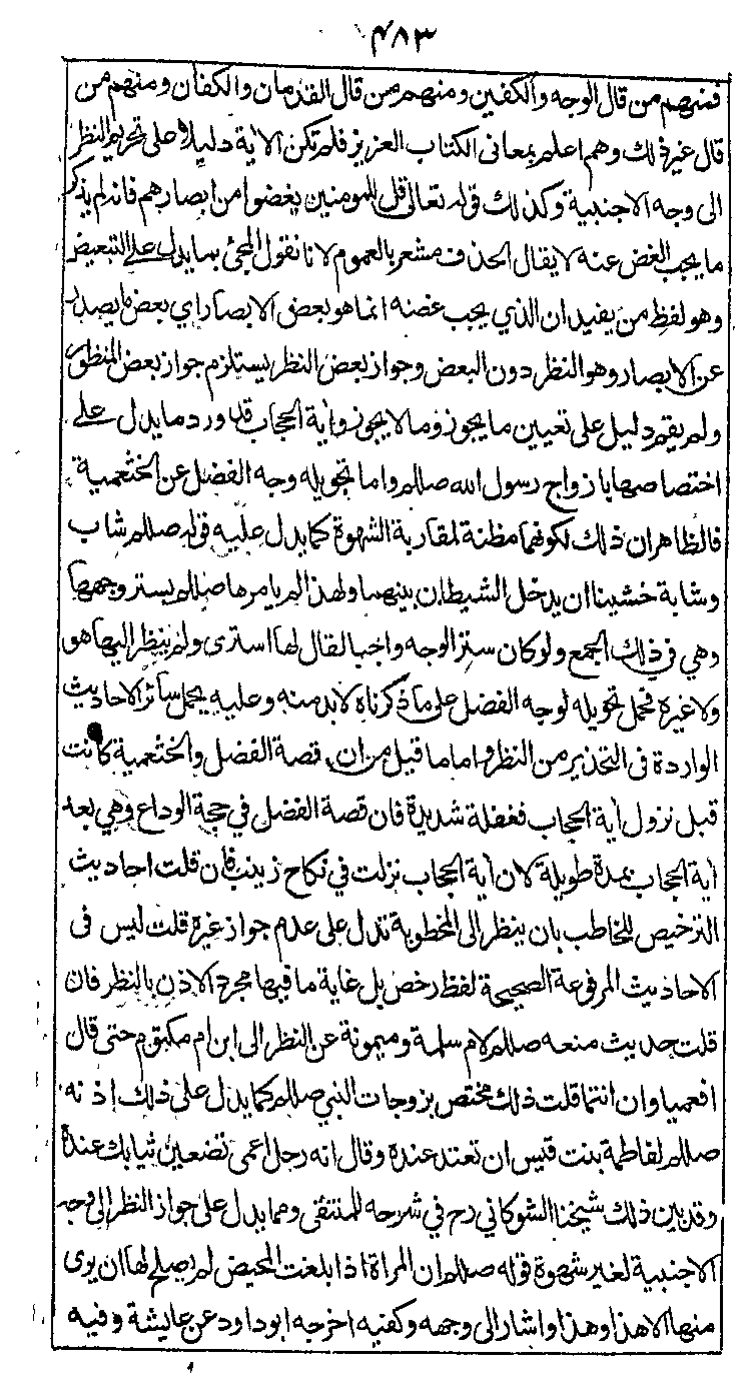 ۴۸۳
فمنهم من قال الوجه والكفين ومنهم من قال القدمان والكفان ومنهم من
قال غير ذلك وهم اعلم بمعانى الكتاب العزيز فلم تكن الاية دليلا على تحريم النظر
الى وجه الاجنبية وكذلك قوله تعالى قل للمومنين يغضوا من ابصارهم فانه لم يذكر
ما يجب الغض عنه لا يقال الحذف مشعر بالعموم لانا نقول المجئ بما يدل على التبعيض
وهو لفظ من يفيد ان الذي يجب غضه انما هو بعض الابصار اي بعض ما يصدر
عن الابصار وهو النظر دون البعض وجواز بعض النظر يستلزم جواز بعض المنظور
ولم يقم دليل على تعيين ما يجوز وما لا يجوز واية الحجاب قد ورد ما يدل على
اختصاصها بازواج رسول الله صللم واما تحويله وجه الفضل عن الخثعمية
فالظاهر ان ذلك لكونهما مظنة لمقاربة الشهوة كما يدل عليه قوله صللم شاب
وشابة خشينا ان يدخل الشيطان بينهما ولهذا لم يامرها صللم بستر وجهها
وهي في ذلك الجمع ولو كان ستر الوجه واجبا لقال لها استرى ولم ينظر اليها هو
ولا غيره فحمل تحويله لوجه الفضل على ما ذكرناه لا بد منه وعليه يحمل سائر الاحاديث
الواردة فى التحذير من النظر واما ما قيل من ان قصة الفضل والخثعمية كانت
قبل نزول اية الحجاب فغفلة شديدة فان قصة الفضل في حجة الوداع وهي بعد
اية الحجاب بمدة طويلة لان اية الحجاب نزلت في نكاح زينب فان قلت احاديث
الترخيص للخاطب بان ينظر الى المخطوبة تدل على عدم جواز غيره قلت ليس فى
الاحاديث المرفوعة الصحيحة لفظ رخص بل غاية ما فيها مجرد الاذن بالنظر فان
قلت حديث منعه صللم لام سلمة وميمونة عن النظر الى ابن ام مكتوم حتى قال
افعمياوان انتما قلت ذلك مختص بزوجات النبي صللم كما يدل على ذلك اذنه
صللم لفاطمة بنت قيس ان تعتد عنده وقال انه رجل اعمى تضعين ثيابك عنده
وقد بين ذلك شيخنا الشوكاني رح في شرحه للمنتقى ومما يدل على جواز النظر الى وجه
الاجنبية لغير شهوة قوله صللم ان المراة اذا بلغت المحيض لم يصلح لها ان يرى
منها الا هذا وهذا واشار الى وجهه وكفيه اخرجه ابو داود عن عايشة وفيه